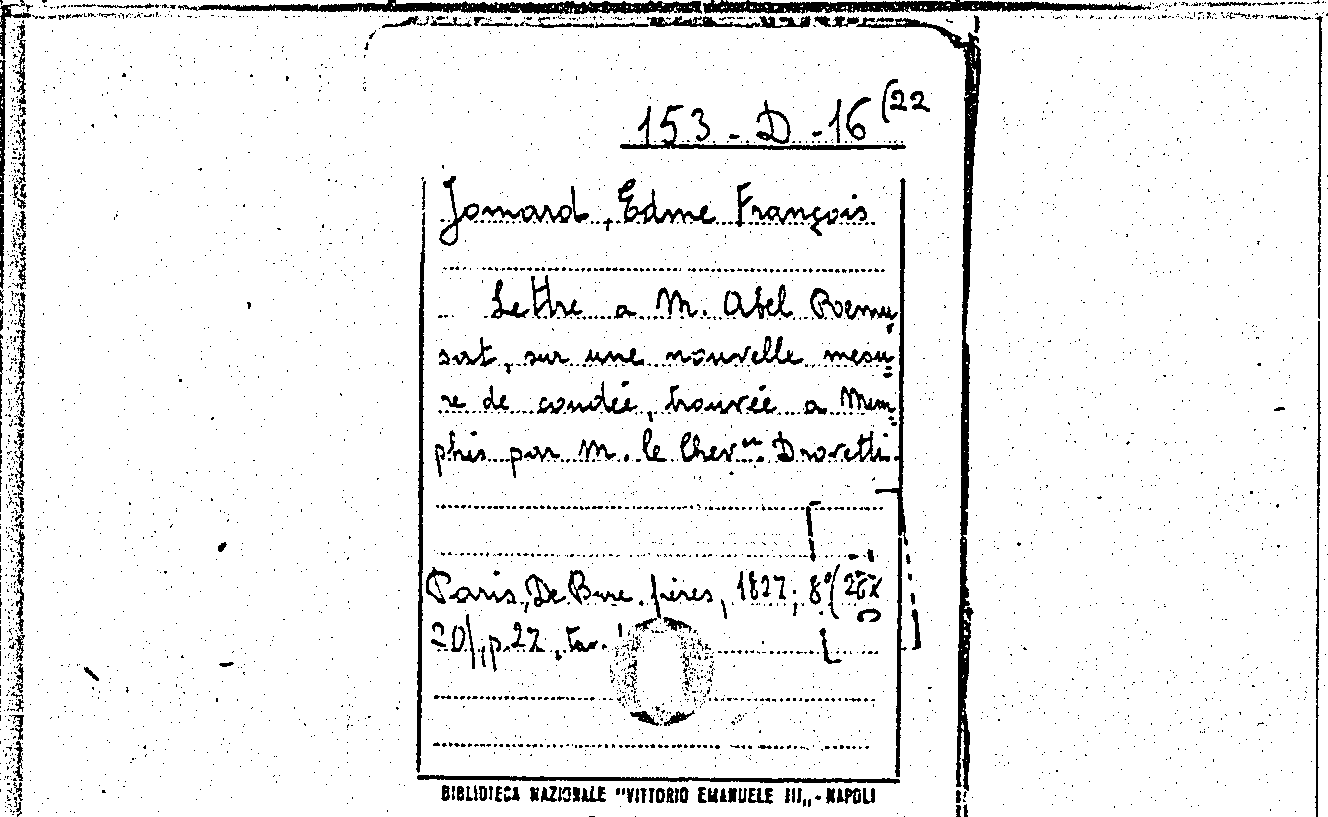 153-D-16(22
Jomard, Edme François
Lettre a M. Abel Remu
sat, sur une nouvelle mesu
re de coudée, trouvée a Mem
phis par M. le Cher. Drovetti.
Paris, De Bure frères, 1827; 8°
20), p. 27, tav.
BIBLIOTECA NAZIONALE "VITTORIO EMANUELE III„ - NAPOLI